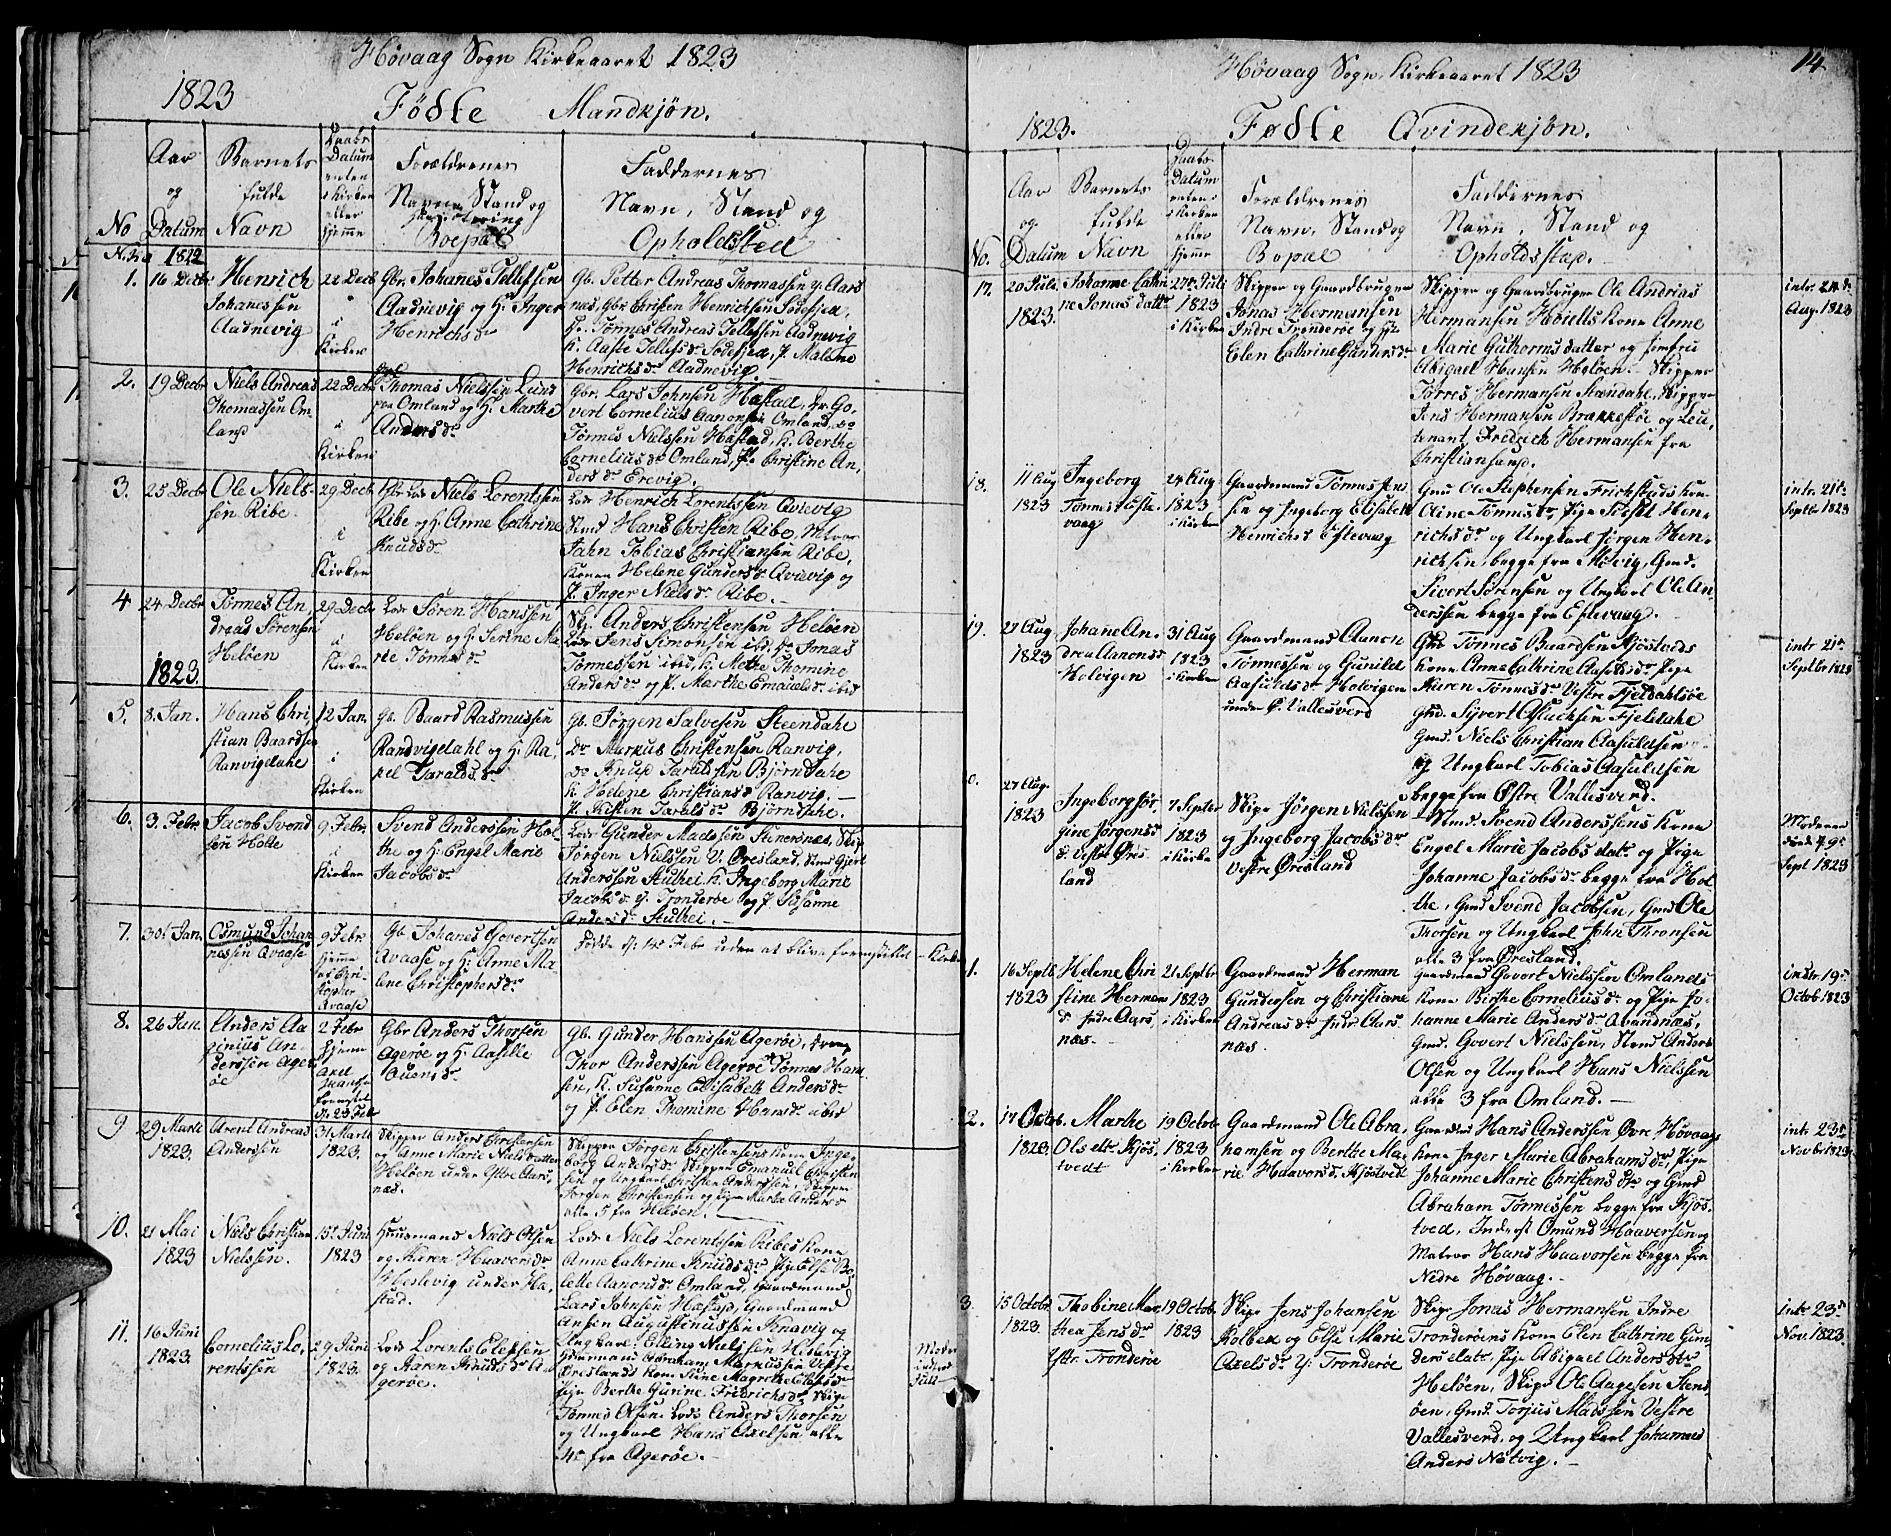 Høvaag Sogn Kirkeaaret 1823
1823
Fødte Mandkjøn.
No
Aar
og
Datum
Barnets
fulde
Navn
Daabs
Datum
enten
i Kirken
eller
hjemme
Forældrenes
Navn, Stand og
Boepæl
Faddernes
Navn, Stand og
Opholdsted
1822
1.
16 Decbr
Henrich
Johanessen
Aadnevig
22 Decb
i
Kirken
Gbr. Johanes Tellefsen
Aadnevig og H. Inger
Henrichsdr
Gb. Petter Andreas Thomassen y. Aars
nes, Gbr Christen Henrichsen Sodefjed,
Do. Tønnes Andreas Tellefsen Aadnevig
K. Aaste Tellefsdr Sodefjed, P. Malene
Henrichsdr Aadnevig
2.
19 Decbr
Niels Andreas
Thomassen Om-
land
22 Decbr
i
Kirken
Thomas Nielssen Lund
paa Omland og H. Marthe
Andersdr
Gbr. Lars Johnsen Hæstad, Gbr. Go-
vert Cornelius Aanonsen Omland, do
Tønnes Nielssen Hæstad, K. Berthe
Corneliusdr Omland, P. Christine An-
dersdr Erevig.
3.
25 Decbr
Ole Niels-
sen Ribe
29 Decb
i
Kirken
Gbr Lods Niels Lorentssen
Ribe og H. Anne Cathrine
Knudsdr
Lods Henrich Lorentssen Qvievig
Hans Christen Ribe, Matros
Jahn Tobias Christiansen Ribe,
Konen Helene Gundersdr Qvievig og
P. Inger Nielsdr Ribe.
4
24 Decbr
1823.
Tønnes An-
dreas Sørensen
Heløen
29 Decb
i
Kirken
Lods Søren Hanssen
Heløen og H. Serine Ma-
rie Tønnesdr
Sk. Anders Christensen Heløen
Lods Jens Simonsen ibd. do Jonas
Tønnessen ibid K. Mette Thomine
Andersdr og P. Marthe Emanuelsdr ibid
5.
8. Jan.
Hans Chri-
stian Baardsen
Ranvigdahe
12 Jan.
i
Kirken
Gb. Baard Rasmussen
Randvigdahl og H. Ra-
kel Taraldsdr
Gb. Jørgen Salvesen Steendahe
do Markus Christensen Ranvig,
do Knud Taraldsen Bjørndahe
K. Helene Christiansdr Ranvig,
P. Kisten Taraldsdr Bjørndahe.
6.
3. Febr.
Jacob Svend
sen Holte
9 Febr.
i
Kirken
Svend Anderssen Hol-
the og H. Engel Marie
Jacobsdr
Lods Gunder Madssen Stenersnæs, Skip
Jørgen Nielssen V. Øresland, Gjert
Anderssen Authei K. Ingeborg Marie
Jacobsdr Y. Tronderøe og P. Susanne
Andersdr Authei.
7.
30t Jan.
Osmund Johan
nessen Qvaase
9 Febr
hjemme
Kristopher
Qvaase
Gb. Johanes Govertsen
Qvaase og H. Anne Ma-
lene Christophersdr
Døde d. 14 Febr uden at blive fremstillet i Kirken
8.
26 Jan.
Anders Aa
ginius An-
derssen Ager-
øe
2 Febr
hjemme
Axel
d. 23 Feb
Gbr Anders Thorsen
Agerøe og H. Aasille
Ouensdr
Gb. Gunder Hanssen Agerøe, dreng
Thor Anderssen Agerøe Tønnes Han-
sen, K. Susanne Elisabeth Andersdr
og P. Elen Thomine Hansdr ibid
9
29 Martii
1823.
Arent Andreas
Anderssen
31 Martii
1823.
Skipper Anders Christensen
og Anne Marie Nielsdatter
Heløen under Østre Aars-
næs.
Skipper Jørgen Christensens Kone Inge-
borg Andersdr. Skipper Emanuel Christen
sen og Ungkarl Christen Anderssen, Skipper
Jørgen Christensen og Pigen Marthe Andersdr
alle 5 fra Heløen.
10.
21 Mai
1823
Niels Christian
Nielssen.
15t Juni
1823
Huusmand Niels Olsen
og Karen Haaversdr
Heslevig under Ha-
stad.
Lods Niels Lorentssen Ribes Kone
Anne Cathrine Knudsdr Pige Else Bo-
lette Aanonsdr Omland, Gaardmand
Lars Johnsen Hæstad, Gaardmand
Ansen Augustinussen Knavig og
Ungkarl Elling Nielssen Helevig
11.
16 Juni
1823.
Cornelius Lo-
rentssen
29 Juni
1823.
Lods Lorents Elefsen
og Karen Knudsdr A-
gerøe.
Huusmand Abraham Markussen Vestre
Øreslands Kone Stine Magrethe Olesdr
Pige Berthe Gurine Fridrichsdr, Skipr
Tønnes Olsen, Lods Anders Thorsen
og Ungkarl Hans Axelsen alle
4re fra Agerøe.
14
Høvaag Sogn Kirkeaaret 1823
1823.
Fødte Qvindekjøn.
No.
Aar
og
Datum
Barnets
fulde
Navn
Daabs-
Datum
enten
i Kirken
eller
hjemme
Forældrenes
Navn, Stand og
Bopæl
Faddernes
Navn, Stand og
Opholdsstad.
17.
20 Juli
1823.
Johanne Cathri
ne Jonas datter
27de Juli
1823
i Kirken
Skipper og Gaardbruger
Jonas Hermansen
Indre Tronderøe og H.
Elen Cathrine Gundersdr
Skipper og Gaardbruger Ole Andrias
Hermansen Høietts Kone Anne
Marie Guthormsdatter og Jomfru
Abigael Hansen Heløen. Skipper
Tørres Hermansen Steendahe, Skipper
Jens Hermansen Brækkestøe og Leu-
tenant Fredrich Hermansen fra
Christiansand.
intr. 24de
Aug. 1823
18.
11 Aug
1823
Ingeborg
Tønnes Este-
vaag
24 Aug
1823
i Kirken
Gaardmand Tønnes Jens
sen og Ingeborg Elisabeth
Henrichsdr Estevaag
Gmd Ole Stephensen Frickstads Kone
Oline Tønnesdr, Pige Sidsel Hen-
richsdr og Ungkarl Jørgen Hen-
richsen, begge fra Møvig, Gmd.
Sivert Sørensen og Ungkarl Ole An-
derssen begge fra Estevaag.
intr. 21de
Septbr 1823
19.
27 Aug
1823
Johane An-
drea Aanonsdr
Holvigen
31 Aug
1823
i Kirken
Gaardmand Aanon
Tønnessen og Gunild
Aasuldsdr Holvigen
under Ø. Vallesverd
Gbr. Tønnes Baardsen Kjøstveds
Kone Anne Cathrine Aasuldsdr Pige
Karen Tønnesdr Vestre Fjeldahlsøe
Gmd. Sivert Aslachsen Fjeldahe
Gmd. Niels Christian Aasuldsen
og Ungkarl Tobias Aasuldsen
begge fra Østre Vallesverd.
intr 21de
Septbr 1823
0.
27 Aug.
1823
Ingeborg Jør
gine Jørgensdr
Vestre Øres
land
7 Septbr
1823
i Kirken
Skipr Jørgen Nielssen
og Ingeborg Jacobsdr
Vestre Øresland
Svend Anderssens Kone
Engel Marie Jacobs datr og Pige
Johanne Jacobsdr begge fra Hol-
the, Gmd Svend Jacobsen, Gmd Ole
Thorsen og Ungkarl John Thronsen
alle 3 fra Øresland.
Moderen
død d. 9de
Sept 1823
1.
16 Septb
1823
Helene Chri
stine Herman
dr Indre Aars-
næs.
21 Septbr
1823
i Kirken
Gaardmand Herman
Gundersen og Christiane
Andreasdr Indr. Aars-
næs.
Gaardmand Govert Nielssen Omlands
Kone Birthe Corneliusdr og Pige Jo-
hanne Marie Andersdr Qvandnæs,
Gmd. Govert Nielssen, Anders
Olsen og Ungkarl Hans Nielssen
alle 3 fra Omland.
indtr. 19de
Octob 1823
2.
17 Octob.
1823.
Marthe
Olsdtr Kjøs-
tvedt
19 Octobr
1823
i Kirken
Gaardmand Ole Abra-
hamsen og Berthe Ma-
rie Haavorsdr Kjøstvedt
Gaardm Hans Anderssen Øvre Høvaags
Kone Inger Marie Abrahamsdr, Pige
Johanne Marie Christensdtr og Gmd
Abraham Tønnessen begge fra Kjøs-
tved, Inderst Omund Haaversen og
Matros Hans Haavorsen begge fra
Nedre Høvaag.
intr 23de
Novbr 1823
3.
15 Octobr
1823.
Thobine Mar-
thea Jensdr
Ystr. Tronderøe
19 Octobr
1823
Skipr Jens Johansen
Kolbek og Else Marie
Axelsdr Y. Tronderøe
Skipr Jonas Hermansen Indre
Tronderøens Kone Elen Cathrine Gun-
dersdatr, Pige Abigael Andersdtr
Heløen, Skipr Ole Aagesen Stens
øen, Gmd. Torjus Madssen Vestre
Vallesverd, og Ungkarl Johannes
Anders Natvig.
intr 23de
Nov. 1823